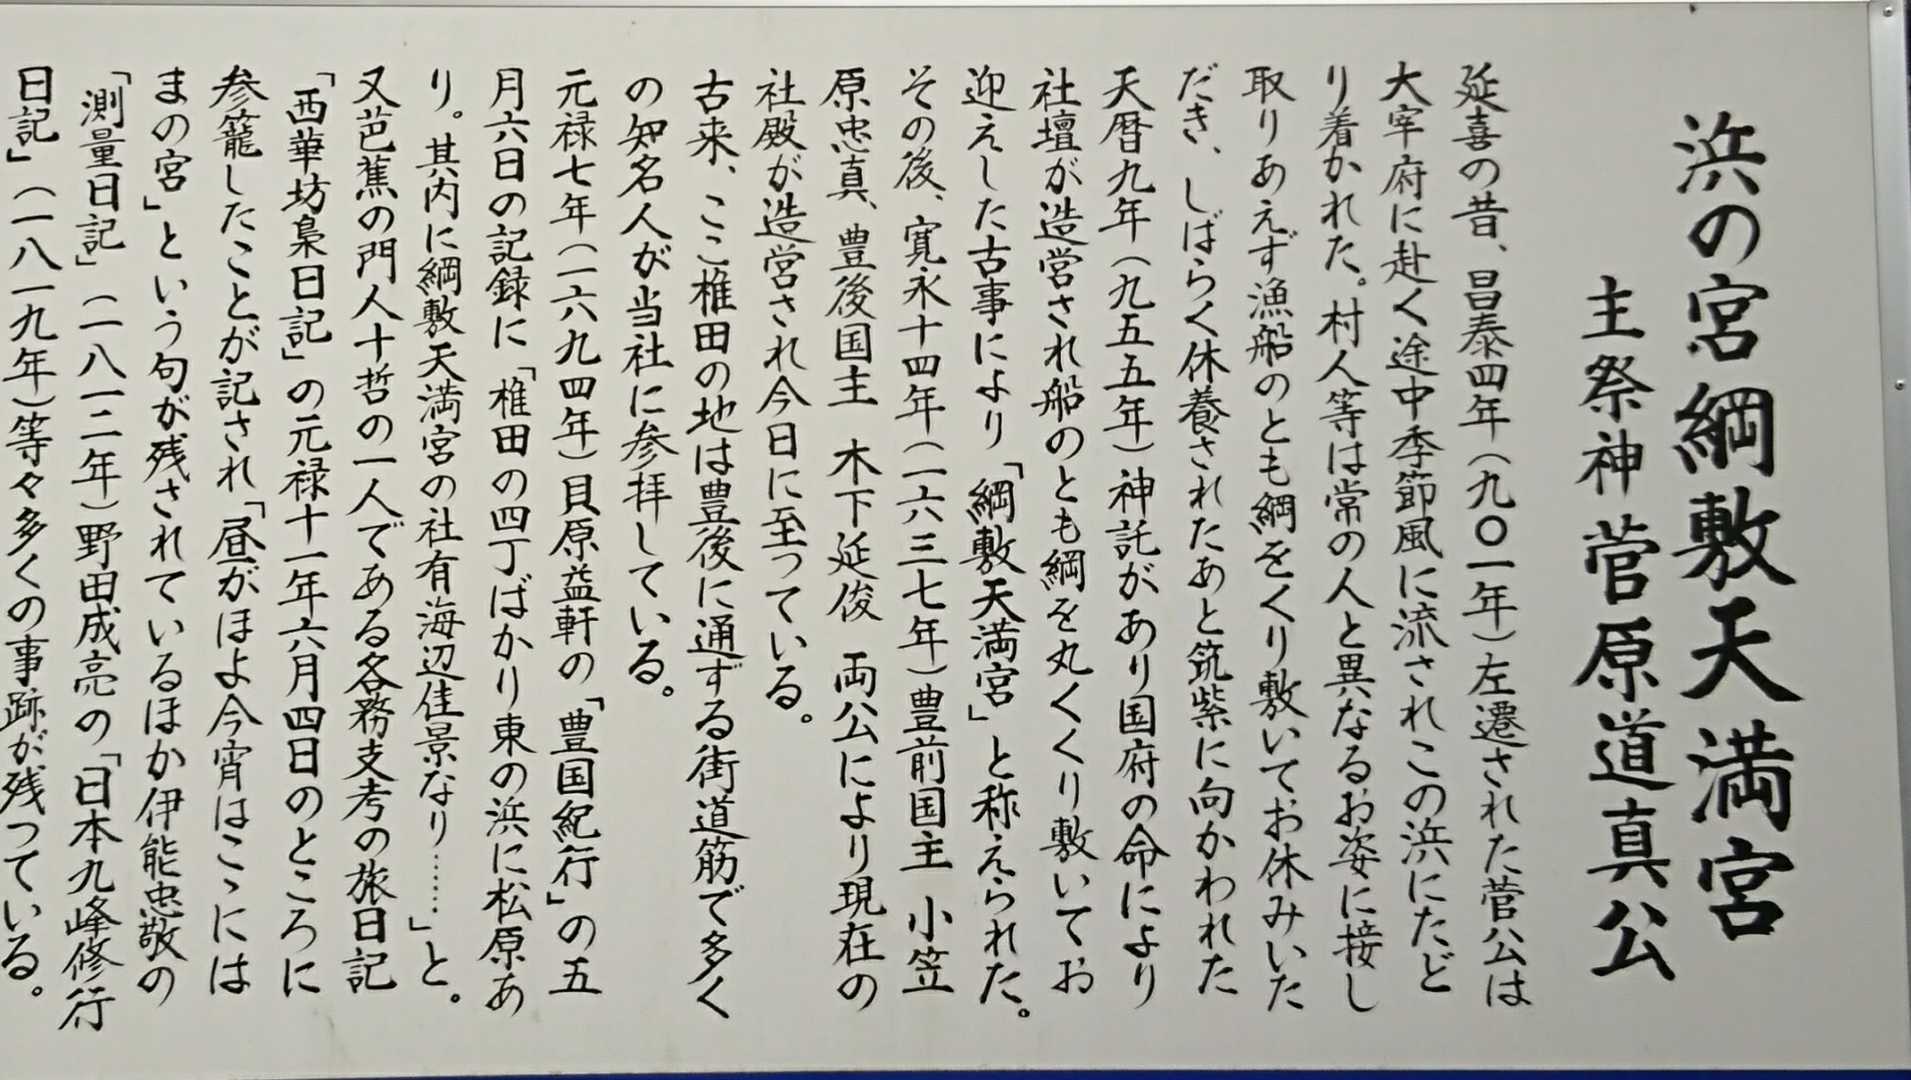 浜の宮綱敷天満宮
主祭神 菅原道真公
延喜の昔、昌泰四年(九〇一年)左遷された菅公は
大宰府に赴く途中季節風に流されこの浜にたど
り着かれた。村人等は常の人と異なるお姿に接し
取りあえず漁船のとも綱をくり敷いてお休みいた
だき、しばらく休養されたあと筑紫に向かわれた
天暦九年(九五五年)神託があり国府の命により
社壇が造営され船のとも綱を丸くくり敷いてお
迎えした古事により「綱敷天満宮」と称えられた。
その後、寛永十四年(一六三七年)豊前国主 小笠
原忠真、豊後国主 木下延俊 両公により現在の
社殿が造営され今日に至っている。
古来、ここ椎田の地は豊後に通ずる街道筋で多く
の知名人が当社に参拝している。
元禄七年(一六九四年)貝原益軒の「豊国紀行」の五
月六日の記録に「椎田の四丁ばかり東の浜に松原あ
り。其内に綱敷天満宮の社有海辺佳景なり……」と。
又芭蕉の門人十哲の一人である各務支考の旅日記
「西華坊梟日記」の元禄十一年六月四日のところに
参籠したことが記され「昼がほよ今宵はこゝには
まの宮」という句が残されているほか伊能忠敬の
「測量日記」(一八一二年)野田成亮の「日本九峰修行
日記」(一八一九年)等々多くの事跡が残っている。